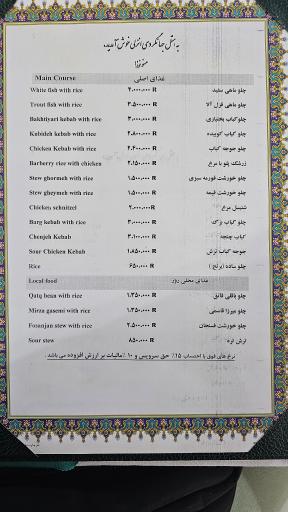 به هتل جهانگردی انزلی خوش آمدید
منو غذا
Main Course غذای اصلی
White fish with rice ۴.۰۰۰.۰۰۰ R چلو ماهی سفید
Trout fish with rice ۳.۵۰۰.۰۰۰ R چلو ماهی قزل آلا
Bakhtiyari kebab with rice ۳.۰۰۰.۰۰۰ R چلوکباب بختیاری
Kubideh kebab with rice ۲.۸۰۰.۰۰۰ R چلو کباب کوبیده
Chicken Kebab with rice ۲.۴۰۰.۰۰۰ R چلو جوجه کباب
Barberry rice with chicken ۲.۱۵۰.۰۰۰ R زرشک پلو با مرغ
Stew ghormeh with rice ۱.۵۰۰.۰۰۰ R چلو خورشت قورمه سبزی
Stew gheymeh with rice ۱.۵۰۰.۰۰۰ R چلو خورشت قیمه
Chicken schnitzel ۲.۰۰۰.۰۰۰ R شنیسل مرغ
Barg kebab with rice ۳.۰۰۰.۰۰۰ R چلو کباب برگ
Chenjeh Kebab ۳.۱۰۰.۰۰۰ R کباب چنجه
Sour Chicken Kebab ۱.۸۵۰.۰۰۰ R جوجه کباب ترش
Rice ۶۵۰.۰۰۰ R چلو ساده (برنج)
Local food غذای محلی روز
Qatq bean with rice ۱.۳۵۰.۰۰۰ R چلو باقلی قاتق
Mirza gasemi with rice ۱.۳۵۰.۰۰۰ R چلو میرزا قاسمی
Fesanjan stew with rice ۲.۵۰۰.۰۰۰ R چلو خورشت فسنجان
Sour stew ۸۵۰.۰۰۰ R ترش تره
نرخ های فوق با احتساب ۱۵٪ حق سرویس و ۱۰٪ مالیات بر ارزش افزوده می باشد.